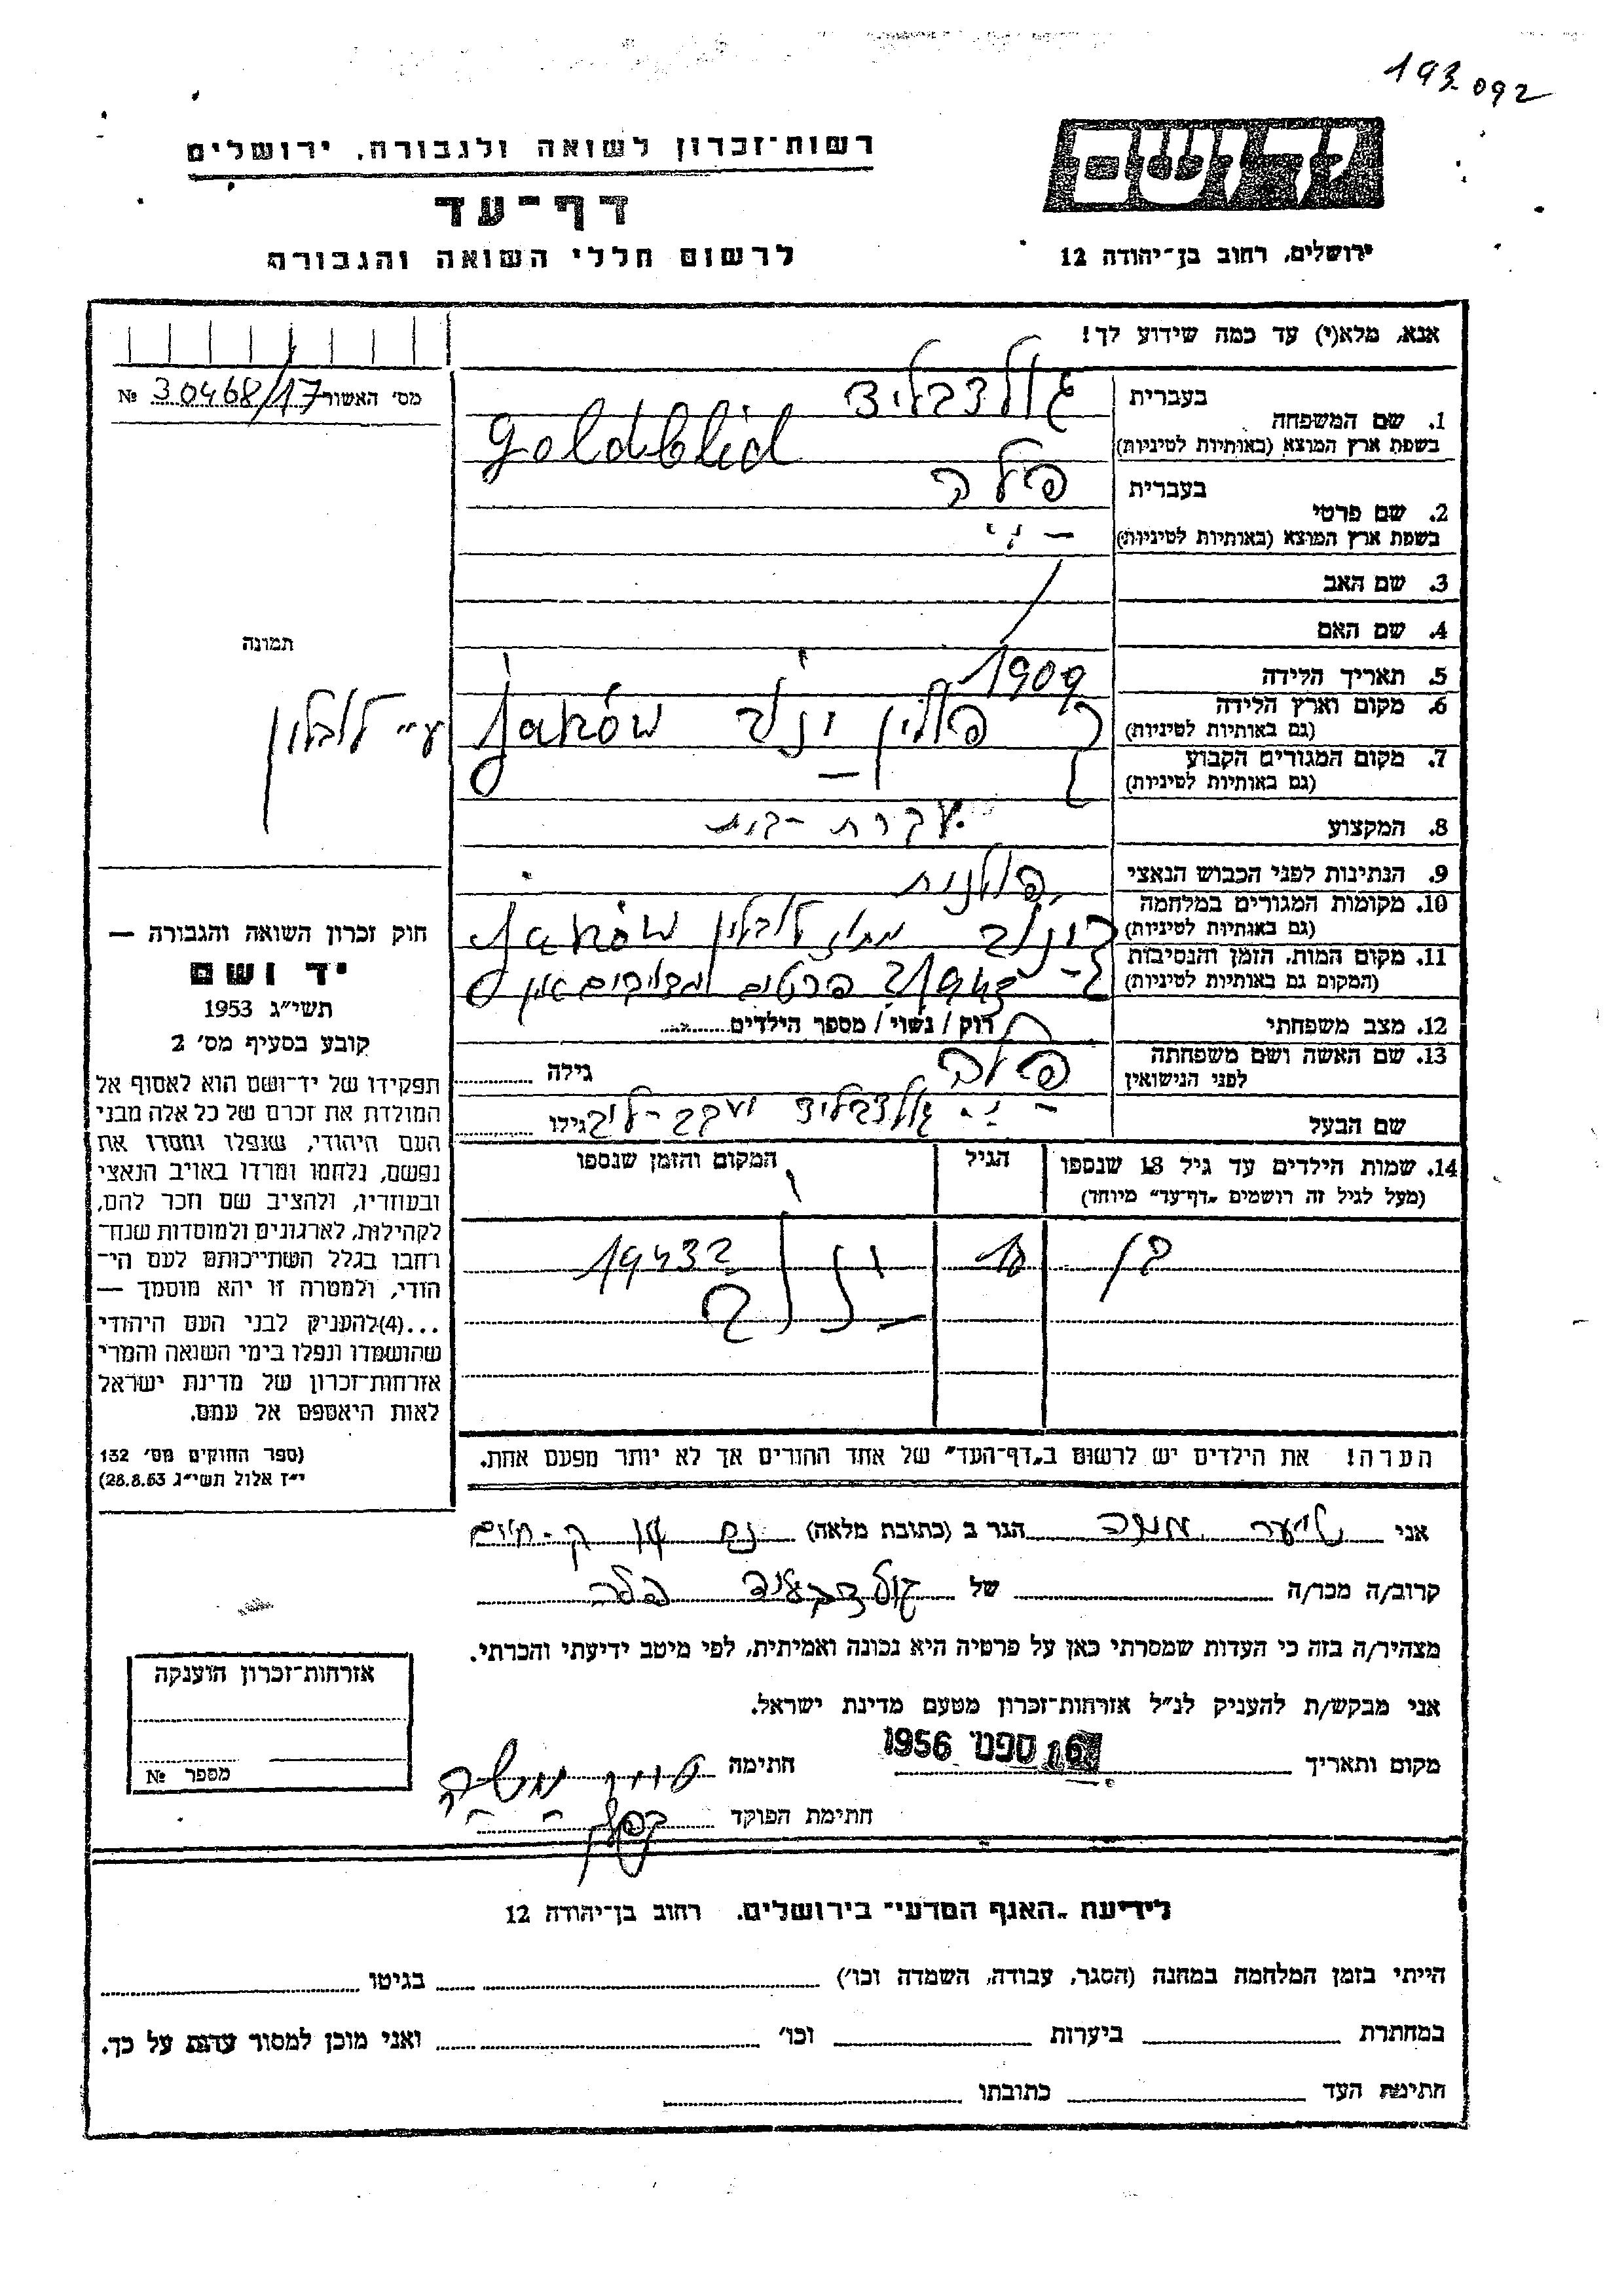 193092
יד ושם
רשות-זכרון לשואה ולגבורה, ירושלים
דף-עד
לרשום חללי השואה והגבורה
ירושלים, רחוב בן-יהודה 12
אנא, מלא(י) עד כמה שידוע לך!
מס׳ האשור 30468/17 №
1. שם המשפחה
בעברית גולדבליד
בשפת ארץ המוצא (באותיות לטיניות) Goldblid
2. שם פרטי
בעברית
בשפת ארץ המוצא (באותיות לטיניות)
3. שם האב
4. שם האם
5. תאריך הלידה 1909
6. מקום וארץ הלידה
(גם באותיות לטיניות) פולין
7. מקום המגורים הקבוע
(גם באותיות לטיניות)
ע״י לובלין
8. המקצוע עקרת-בית
9. הנתינות לפני הכבוש הנאצי פולנית
10. מקומות המגורים במלחמה
(גם באותיות לטיניות) לובלין
11. מקום המות, הזמן והנסיבות
(המקום גם באותיות לטיניות) פרטים מדויקים אין
12. מצב משפחתי רוק / נשוי / מספר הילדים
13. שם האשה ושם משפחתה
לפני הנישואין גילה
שם הבעל גולדבליד גילו
14. שמות הילדים עד גיל 18 שנספו
(מעל לגיל זה רושמים „דף-עד״ מיוחד)
הגיל
המקום והזמן שנספו
בן
הערה! את הילדים יש לרשום ב„דף-העד״ של אחד ההורים אך לא יותר מפעם אחת.
תמונה
חוק זכרון השואה והגבורה —
יד ושם
תשי״ג 1953
קובע בסעיף מס׳ 2
תפקידו של יד-ושם הוא לאסוף אל
המולדת את זכרם של כל אלה מבני
העם היהודי, שנפלו ומסרו את
נפשם, נלחמו ומרדו באויב הנאצי
ובעוזריו, ולהציב שם וזכר להם,
לקהילות, לארגונים ולמוסדות שנח־
רחבו בגלל השתייכותם לעם הי־
הודי, ולמטרה זו יהא מוסמך —
...(4)להעניק לבני העם היהודי
שהושמדו ונפלו בימי השואה והמרי
אזרחות-זכרון של מדינת ישראל
לאות היאספם אל עמם.
(ספר החוקים מס׳ 132
י״ז אלול תשי״ג 28.8.53)
אני הגר ב (כתובת מלאה)
קרוב/ה מכר/ה של
מצהיר/ה בזה כי העדות שמסרתי כאן על פרטיה היא נכונה ואמיתית, לפי מיטב ידיעתי והכרתי.
אני מבקש/ת להעניק לנ״ל אזרחות-זכרון מטעם מדינת ישראל.
מקום ותאריך 16 ספט׳ 1956 חתימה
חתימת הפוקד
אזרחות-זכרון הוענקה
מספר №
לידיעת „האגף המדעי״ בירושלים, רחוב בן-יהודה 12
הייתי בזמן המלחמה במחנה (הסגר, עבודה, השמדה וכו׳) בגיטו
במחתרת ביערות וכו׳ ואני מוכן למסור עדות על כך.
חתימת העד כתובתו